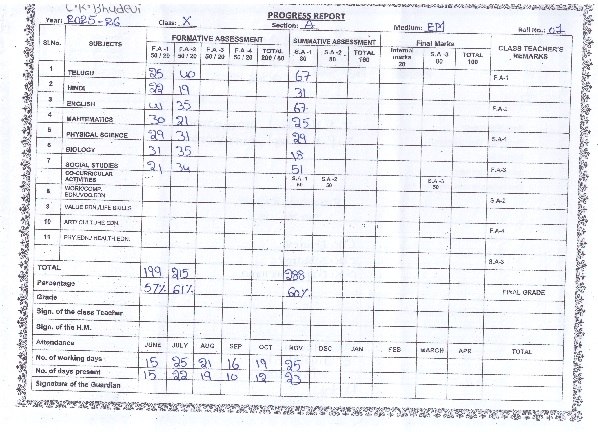 C.K. Bhudevi
PROGRESS REPORT
Year: 2025-26 Class: X Section: A Medium: EM Roll No.: 07
Sl.No. SUBJECTS FORMATIVE ASSESSMENT SUMMATIVE ASSESSMENT Final Marks CLASS TEACHER'S REMARKS
F.A-1 50/20 F.A-2 50/20 F.A-3 50/20 F.A-4 50/20 TOTAL 200/80 S.A-1 80 S.A-2 80 TOTAL 160 Internal marks 20 S.A-3 80 TOTAL 100
1 TELUGU 25 40 67 F.A-1
2 HINDI 22 19 31
3 ENGLISH 41 35 67 F.A-2
4 MAHTEMATICS 30 21 25
5 PHYSICAL SCIENCE 29 31 29 S.A-1
6 BIOLOGY 31 35 18
7 SOCIAL STUDIES 21 34 51 F.A-3
CO-CURRICULAR ACTIVITIES S.A-1 50 S.A-2 50 S.A-3 50
8 WORK/COMP. EDN./VOC.EDN. S.A-2
9 VALUE EDN./LIFE SKILLS
10 ART/CULTURE EDN. F.A-4
11 PHY.EDN./HEALTH EDN.
S.A-3
TOTAL 199 215 288
Percentage 57% 61% 60% FINAL GRADE
Grade
Sign. of the class Teacher
Sign. of the H.M.
Attendance JUNE JULY AUG SEP OCT NOV DEC JAN FEB MARCH APR TOTAL
No. of working days 15 25 21 16 19 25
No. of days present 15 22 19 10 12 23
Signature of the Guardian